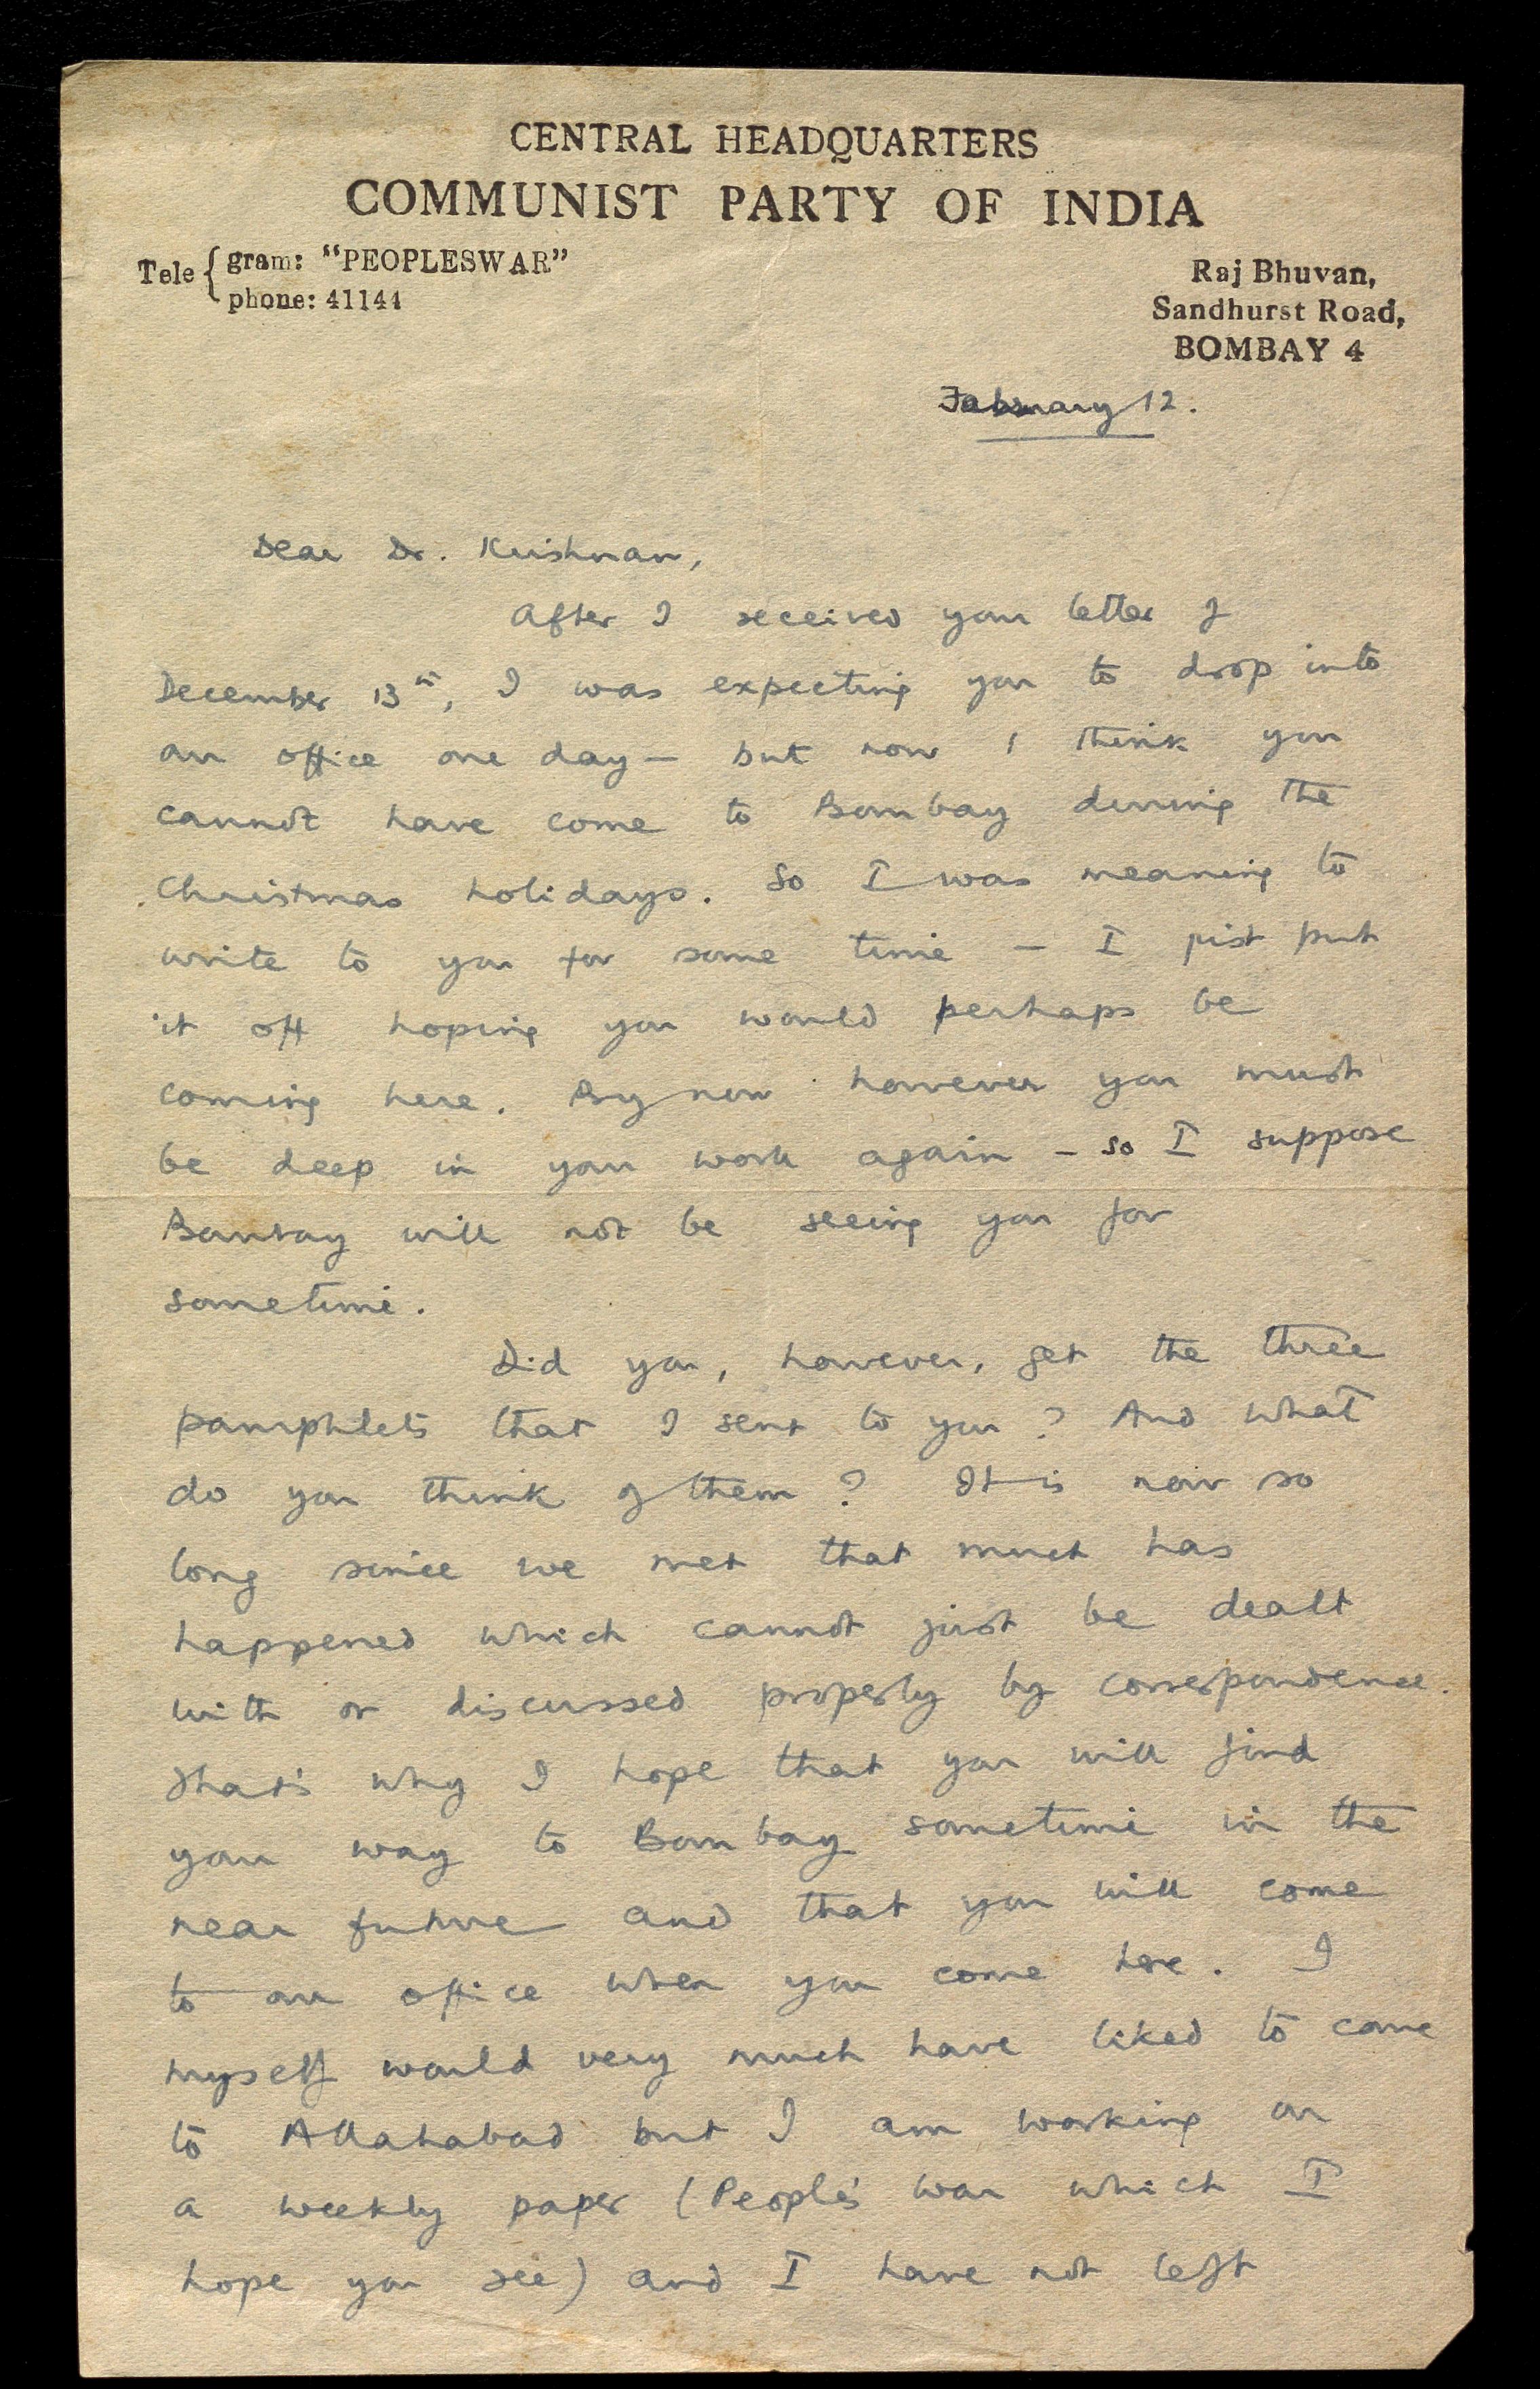 CENTRAL HEADQUARTERS
COMMUNIST PARTY OF INDIA
Tele { gram: "PEOPLESWAR"
phone: 41144
Raj Bhuvan,
Sandhurst Road,
BOMBAY 4
February 12.
Dear Dr. Krishnan,
After I received your letter of
December 13th, I was expecting you to drop into
our office one day — but now I think you
cannot have come to Bombay during the
Christmas holidays. So I was meaning to
write to you for some time — I just put
it off hoping you would perhaps be
coming here. By now however you must
be deep in your work again — so I suppose
Bombay will not be seeing you for
sometime.
Did you, however, get the three
pamphlets that I sent to you? And what
do you think of them? It is now so
long since we met that much has
happened which cannot just be dealt
with or discussed properly by correspondence.
That's why I hope that you will find
your way to Bombay sometime in the
near future and that you will come
to our office when you come here. I
myself would very much have liked to come
to Allahabad but I am working on
a weekly paper (People's War which I
hope you see) and I have not left